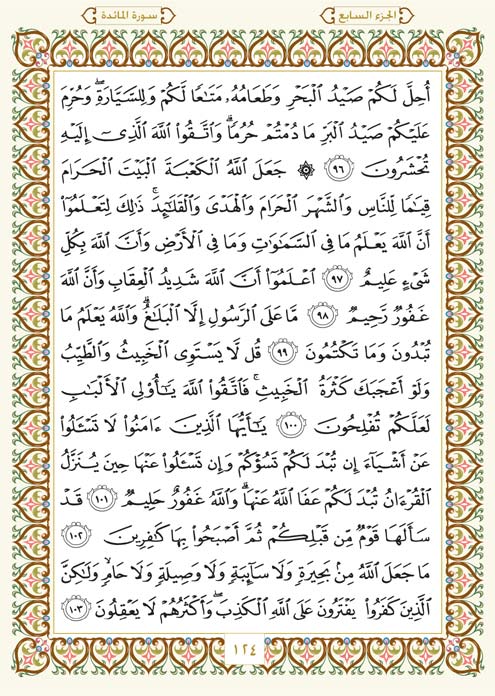 الجزء السابع
سورة المائدة
أُحِلَّ لَكُمْ صَيْدُ ٱلْبَحْرِ وَطَعَامُهُۥ مَتَٰعًا لَّكُمْ وَلِلسَّيَّارَةِۖ وَحُرِّمَ
عَلَيْكُمْ صَيْدُ ٱلْبَرِّ مَا دُمْتُمْ حُرُمًاۗ وَٱتَّقُوا۟ ٱللَّهَ ٱلَّذِىٓ إِلَيْهِ
تُحْشَرُونَ ٩٦ ۞ جَعَلَ ٱللَّهُ ٱلْكَعْبَةَ ٱلْبَيْتَ ٱلْحَرَامَ
قِيَٰمًا لِّلنَّاسِ وَٱلشَّهْرَ ٱلْحَرَامَ وَٱلْهَدْىَ وَٱلْقَلَٰٓئِدَۚ ذَٰلِكَ لِتَعْلَمُوٓا۟
أَنَّ ٱللَّهَ يَعْلَمُ مَا فِى ٱلسَّمَٰوَٰتِ وَمَا فِى ٱلْأَرْضِ وَأَنَّ ٱللَّهَ بِكُلِّ
شَىْءٍ عَلِيمٌ ٩٧ ٱعْلَمُوٓا۟ أَنَّ ٱللَّهَ شَدِيدُ ٱلْعِقَابِ وَأَنَّ ٱللَّهَ
غَفُورٌ رَّحِيمٌ ٩٨ مَّا عَلَى ٱلرَّسُولِ إِلَّا ٱلْبَلَٰغُۗ وَٱللَّهُ يَعْلَمُ مَا
تُبْدُونَ وَمَا تَكْتُمُونَ ٩٩ قُل لَّا يَسْتَوِى ٱلْخَبِيثُ وَٱلطَّيِّبُ
وَلَوْ أَعْجَبَكَ كَثْرَةُ ٱلْخَبِيثِۚ فَٱتَّقُوا۟ ٱللَّهَ يَٰٓأُو۟لِى ٱلْأَلْبَٰبِ
لَعَلَّكُمْ تُفْلِحُونَ ١٠٠ يَٰٓأَيُّهَا ٱلَّذِينَ ءَامَنُوا۟ لَا تَسْـَٔلُوا۟
عَنْ أَشْيَآءَ إِن تُبْدَ لَكُمْ تَسُؤْكُمْ وَإِن تَسْـَٔلُوا۟ عَنْهَا حِينَ يُنَزَّلُ
ٱلْقُرْءَانُ تُبْدَ لَكُمْ عَفَا ٱللَّهُ عَنْهَاۗ وَٱللَّهُ غَفُورٌ حَلِيمٌ ١٠١ قَدْ
سَأَلَهَا قَوْمٌ مِّن قَبْلِكُمْ ثُمَّ أَصْبَحُوا۟ بِهَا كَٰفِرِينَ ١٠٢
مَا جَعَلَ ٱللَّهُ مِنۢ بَحِيرَةٍ وَلَا سَآئِبَةٍ وَلَا وَصِيلَةٍ وَلَا حَامٍۙ وَلَٰكِنَّ
ٱلَّذِينَ كَفَرُوا۟ يَفْتَرُونَ عَلَى ٱللَّهِ ٱلْكَذِبَۖ وَأَكْثَرُهُمْ لَا يَعْقِلُونَ ١٠٣
١٢٤